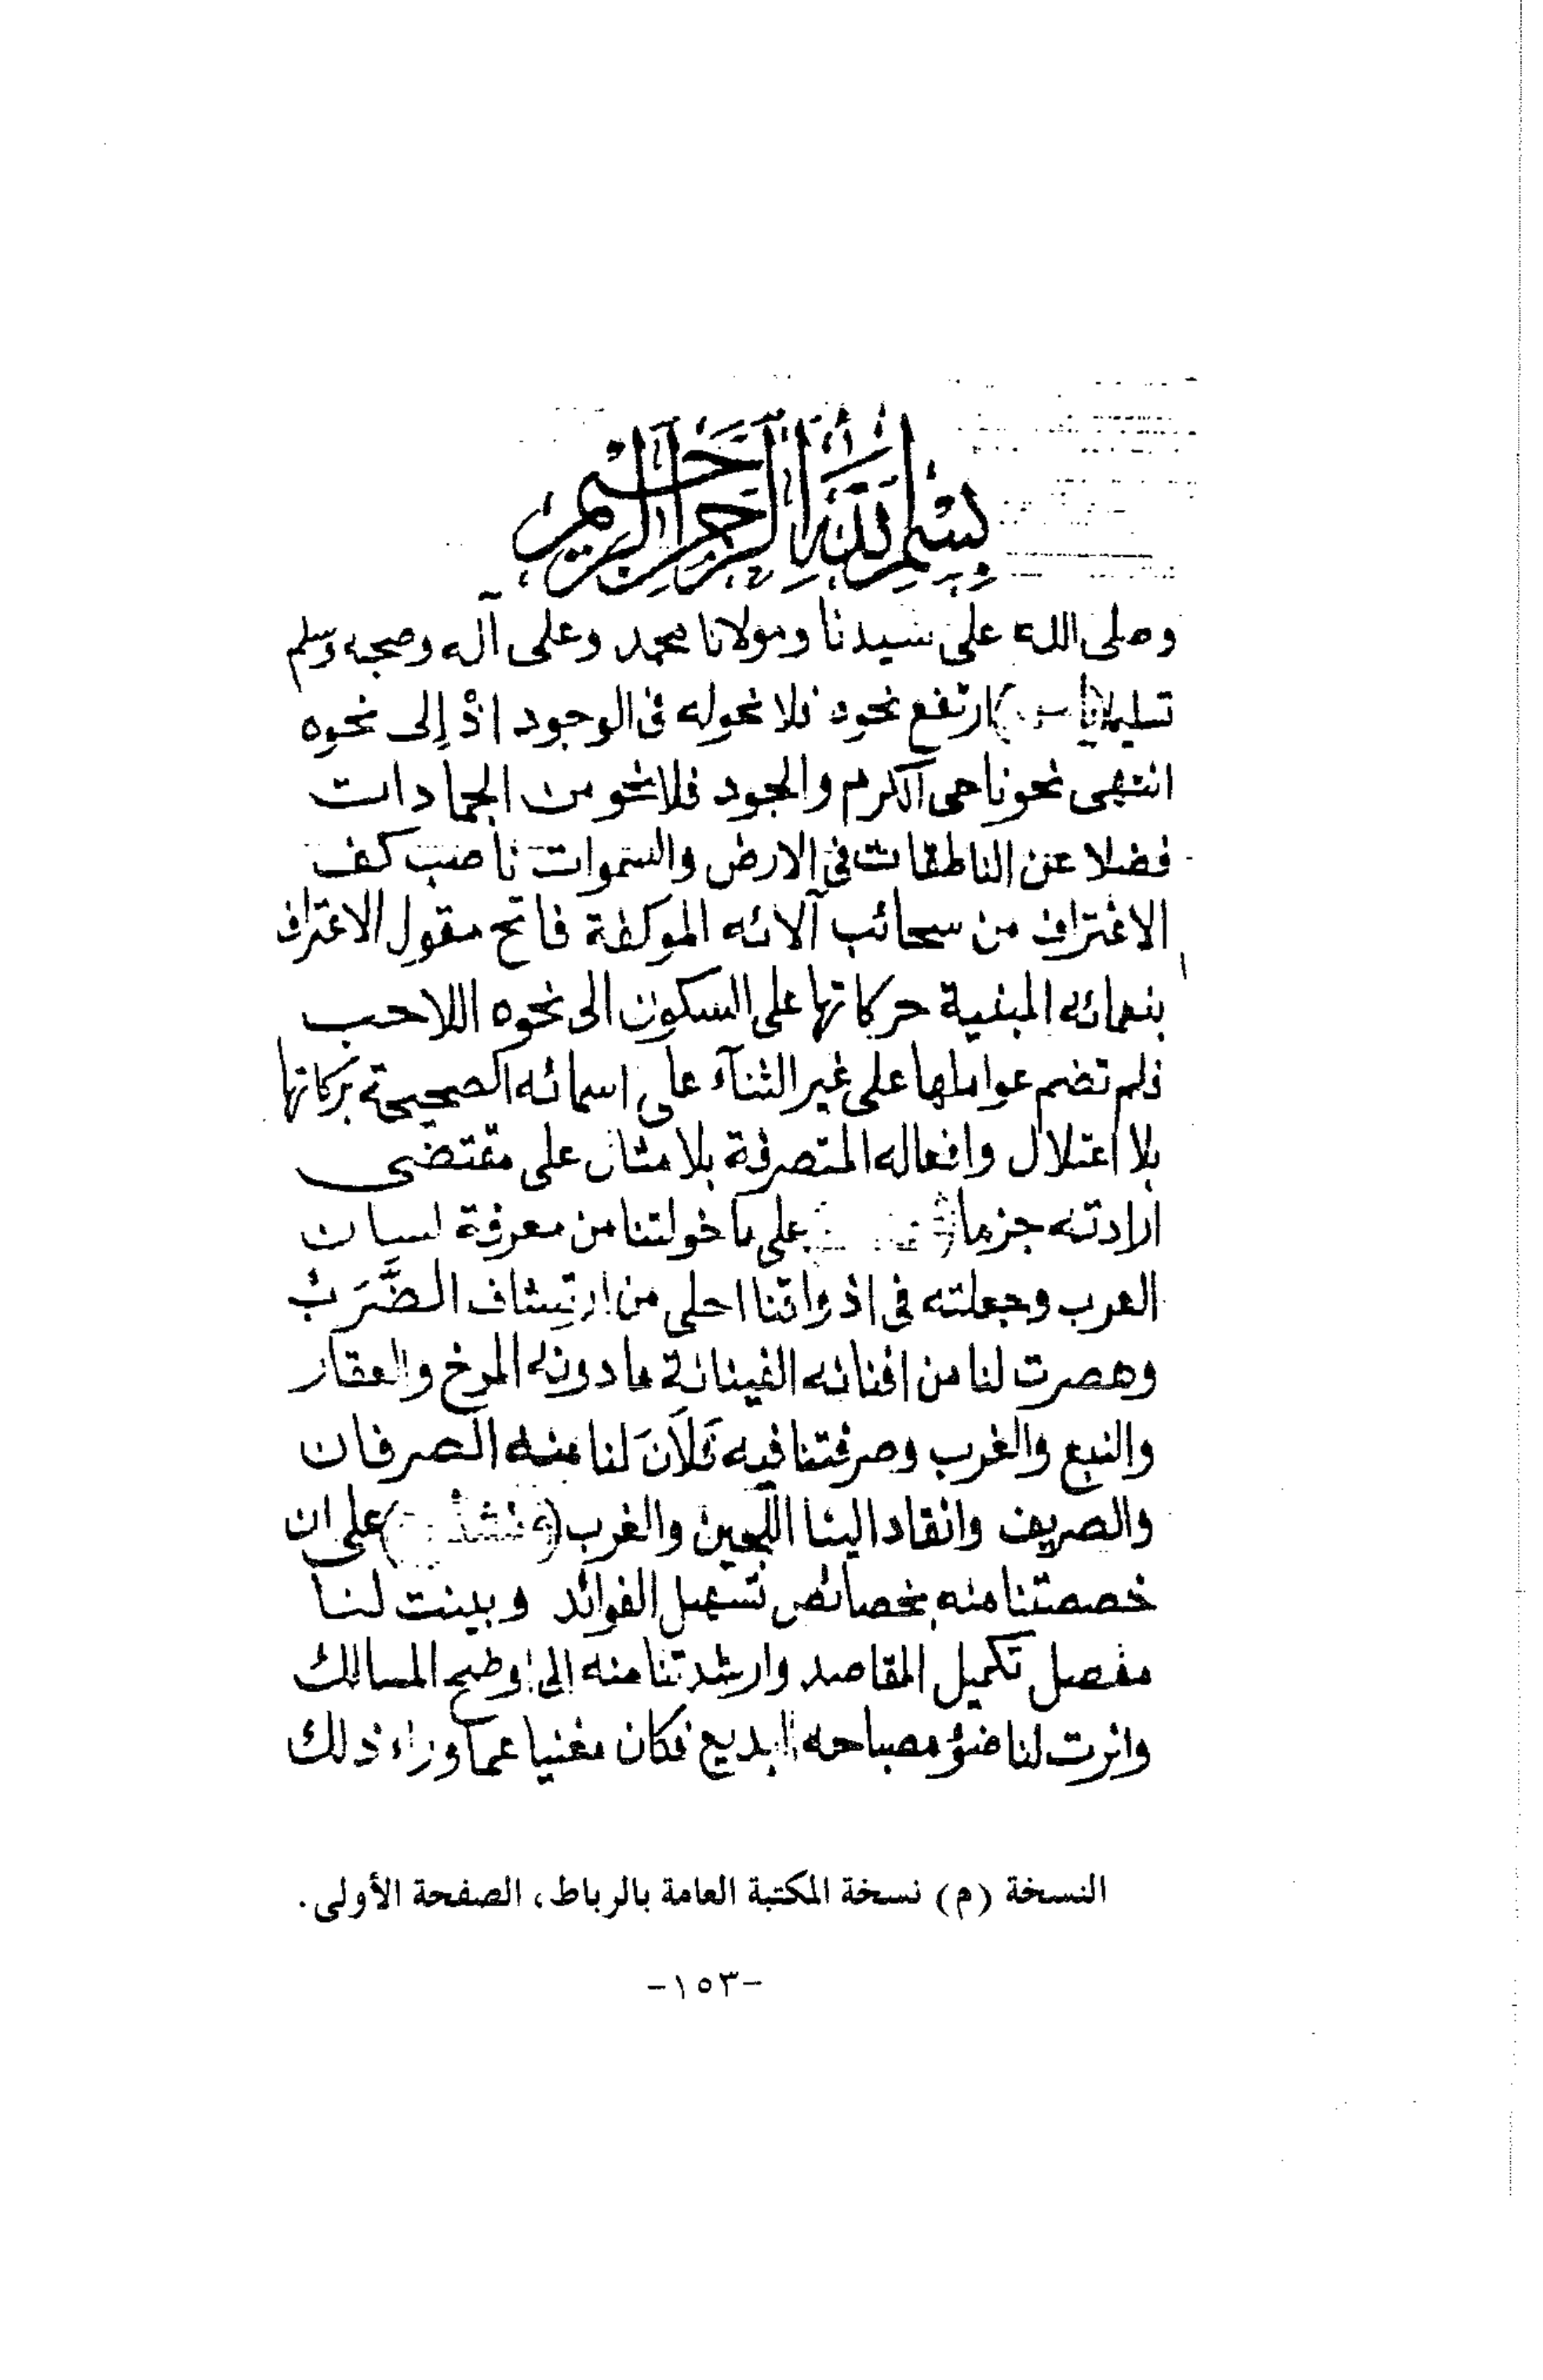 بسم الله الرحمن الرحيم
وصلى الله على سيدنا ومولانا محمد وعلى آله وصحبه وسلم
تسليما ارتفع نحوه فلا نحوله فى الوجود اذْ اِلى نحوه
انتهى نحوناحى الكرم والجود فلا نحو من الجمادات
فضلا عن الناطقات فى الارض والسموات ناصب كف
الاغتراف من سحائب آلائه الموكفة فاتح مقول الاعتراف
بنعمائه المبنية حركاتها على السكون الى نحوه اللاحب
فلم تضم عواملها على غير الثنآء على اسمائه الصحيحة بركاتها
بلا اعتلال وافعاله المتصرفة بلا مثال على مقتضى
ارادته جزما على ما خولتنا من معرفة لسان
العرب وجعلته فى اذواقنا احلى من ارتِشاف الضَّرَب
وهصرت لنا من افنانه الفينانة ما دونه المرخ والعقار
والنبع والغرب وصرفتنا فيه فَلَانَ لنا منه الصرفان
والصريف وانقاد الينا اللجين والغرب على ان
خصصتنا منه بخصائص تسهيل الفوائد وبينت لنا
مفصل تكميل المقاصد وارشدتنا منه الى اوضح المسالك
وانرت لنا ضؤ مصباحه البديع فكان مغنيا عما وراء ذلك
النسخة (م) نسخة المكتبة العامة بالرباط، الصفحة الأولى.
-١٥٣-